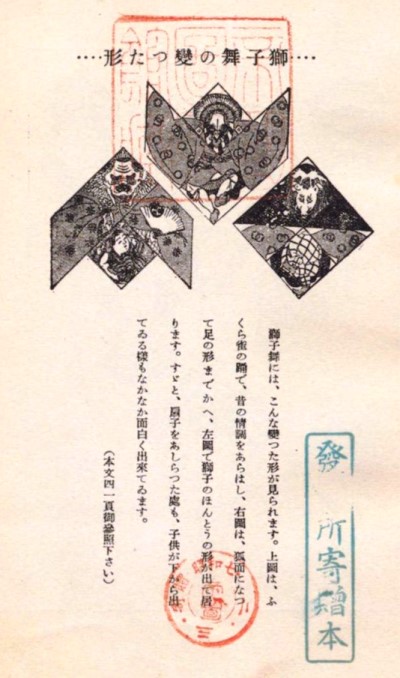 ····獅子舞の變つた形····
獅子舞には、こんな變つた形が見られます。上圖は、ふ
くら雀の踊で、昔の情調をあらはし、右圖は、狐面になつ
て足の形までかへ、左圖で獅子のほんとうの形が出て居
ります。すゞと、扇子をあしらつた處も、子供が下から出
てゐる樣もなかなか面白く出來てゐます。
(本文四一頁御參照下さい)
發
所寄增本